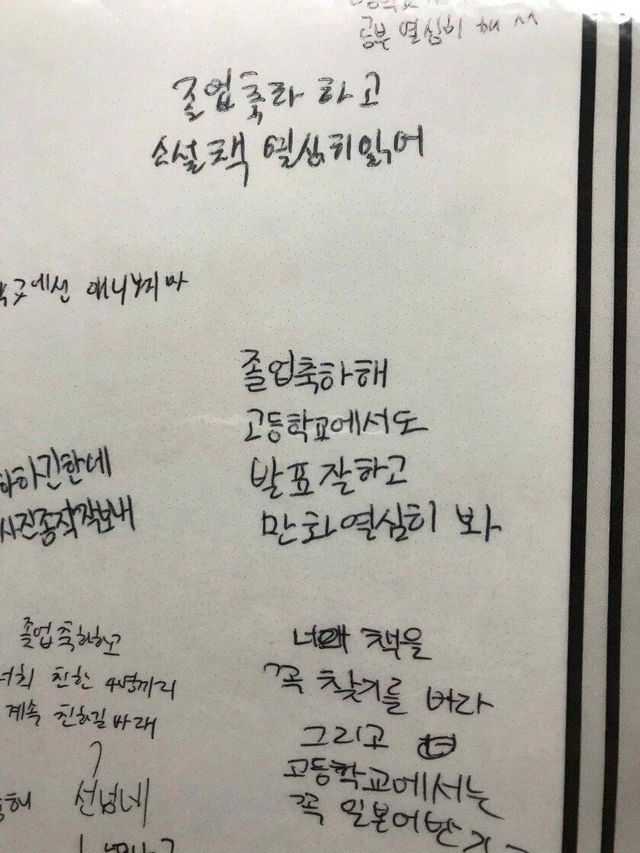 공부 열심히 해 ^^
졸업축하 하고
소설책 열심히읽어
애니보지마
졸업축하해
고등학교에서도
발표잘하고
만화열심히 봐
하긴한데
사진좀작작보내
졸업축하하고
너희 친한 4명끼리
계속 친하길바래
책을
꼭 찾기를 바라
그리고
고등학교에서는
꼭 일본어반가
선넘네